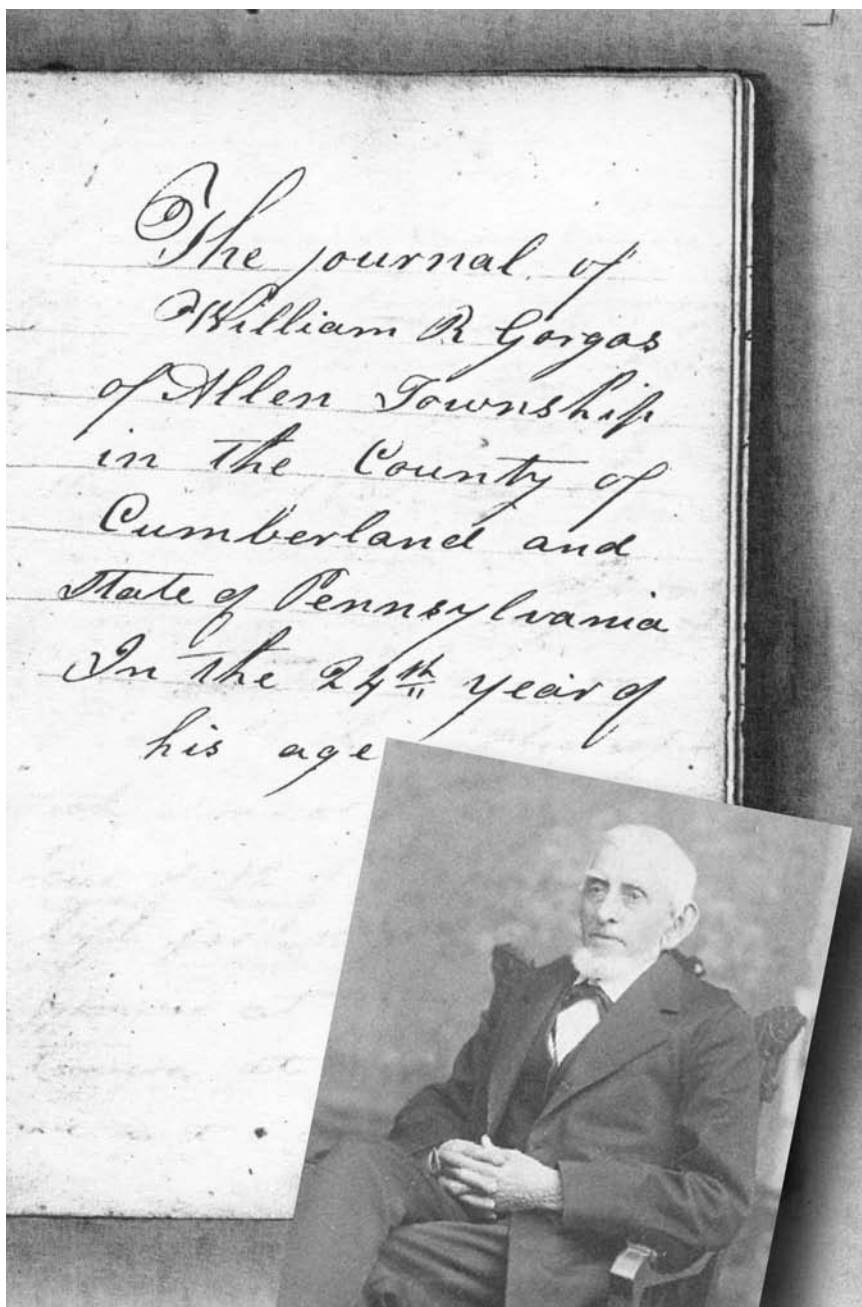 The journal of
William R Gorgas
of Allen Township
in the County of
Cumberland and
State of Pennsylvania
In the 24th year of
his age